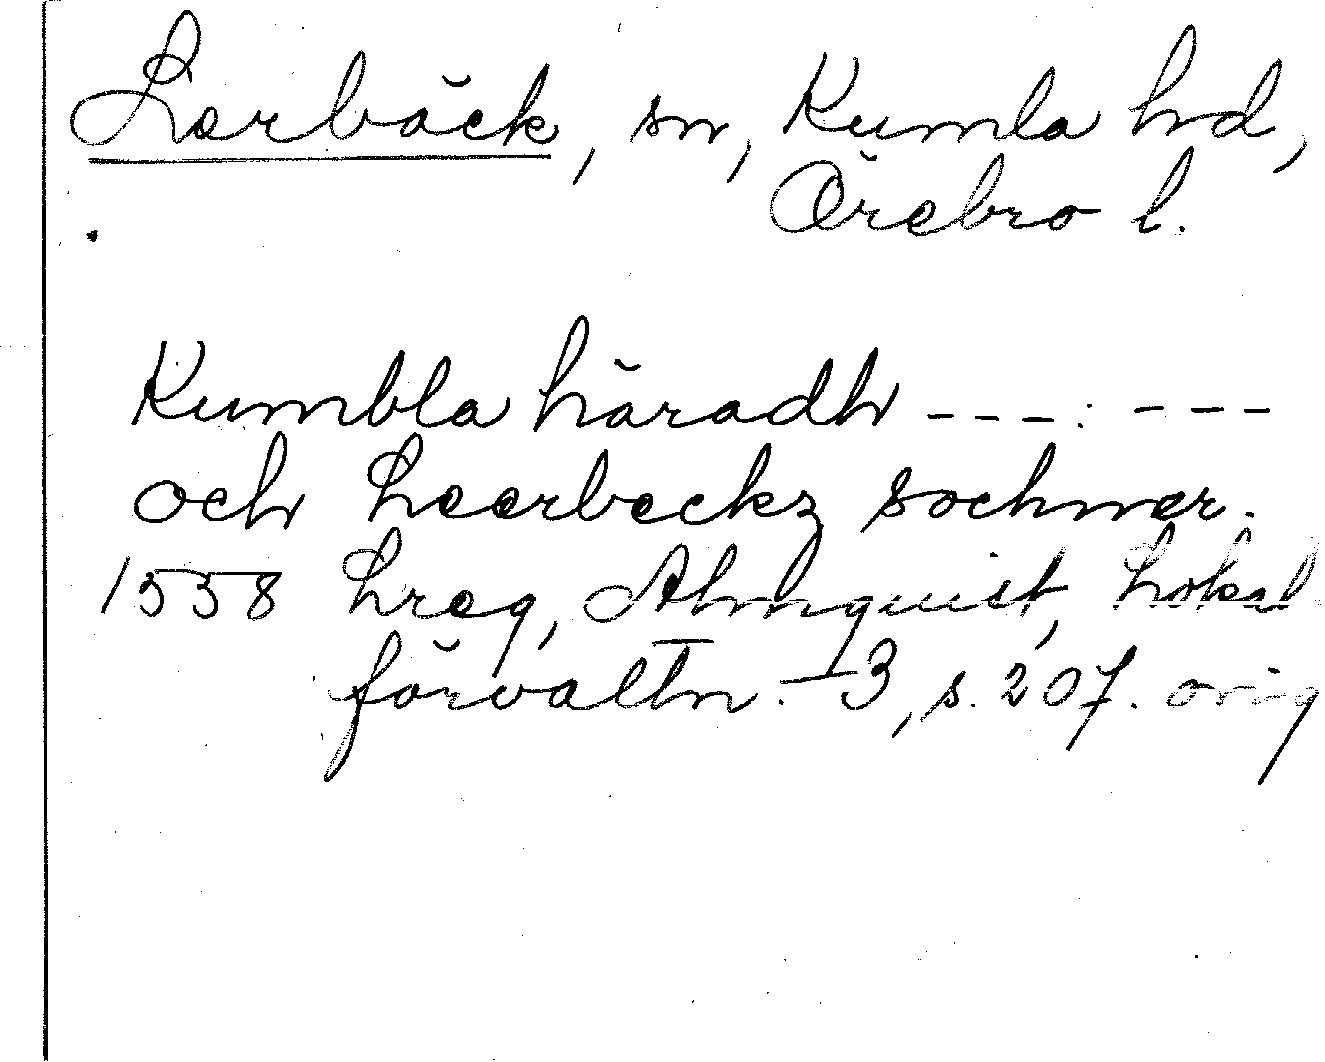 Lerbäck, sn, Kumla hd,
Örebro l.
Kumbla häradh - - - : - - -
och Leerbeckz sochner.
1558 Lreg, Almquist, Lokal
förvaltn. I 3, s. 207. orig